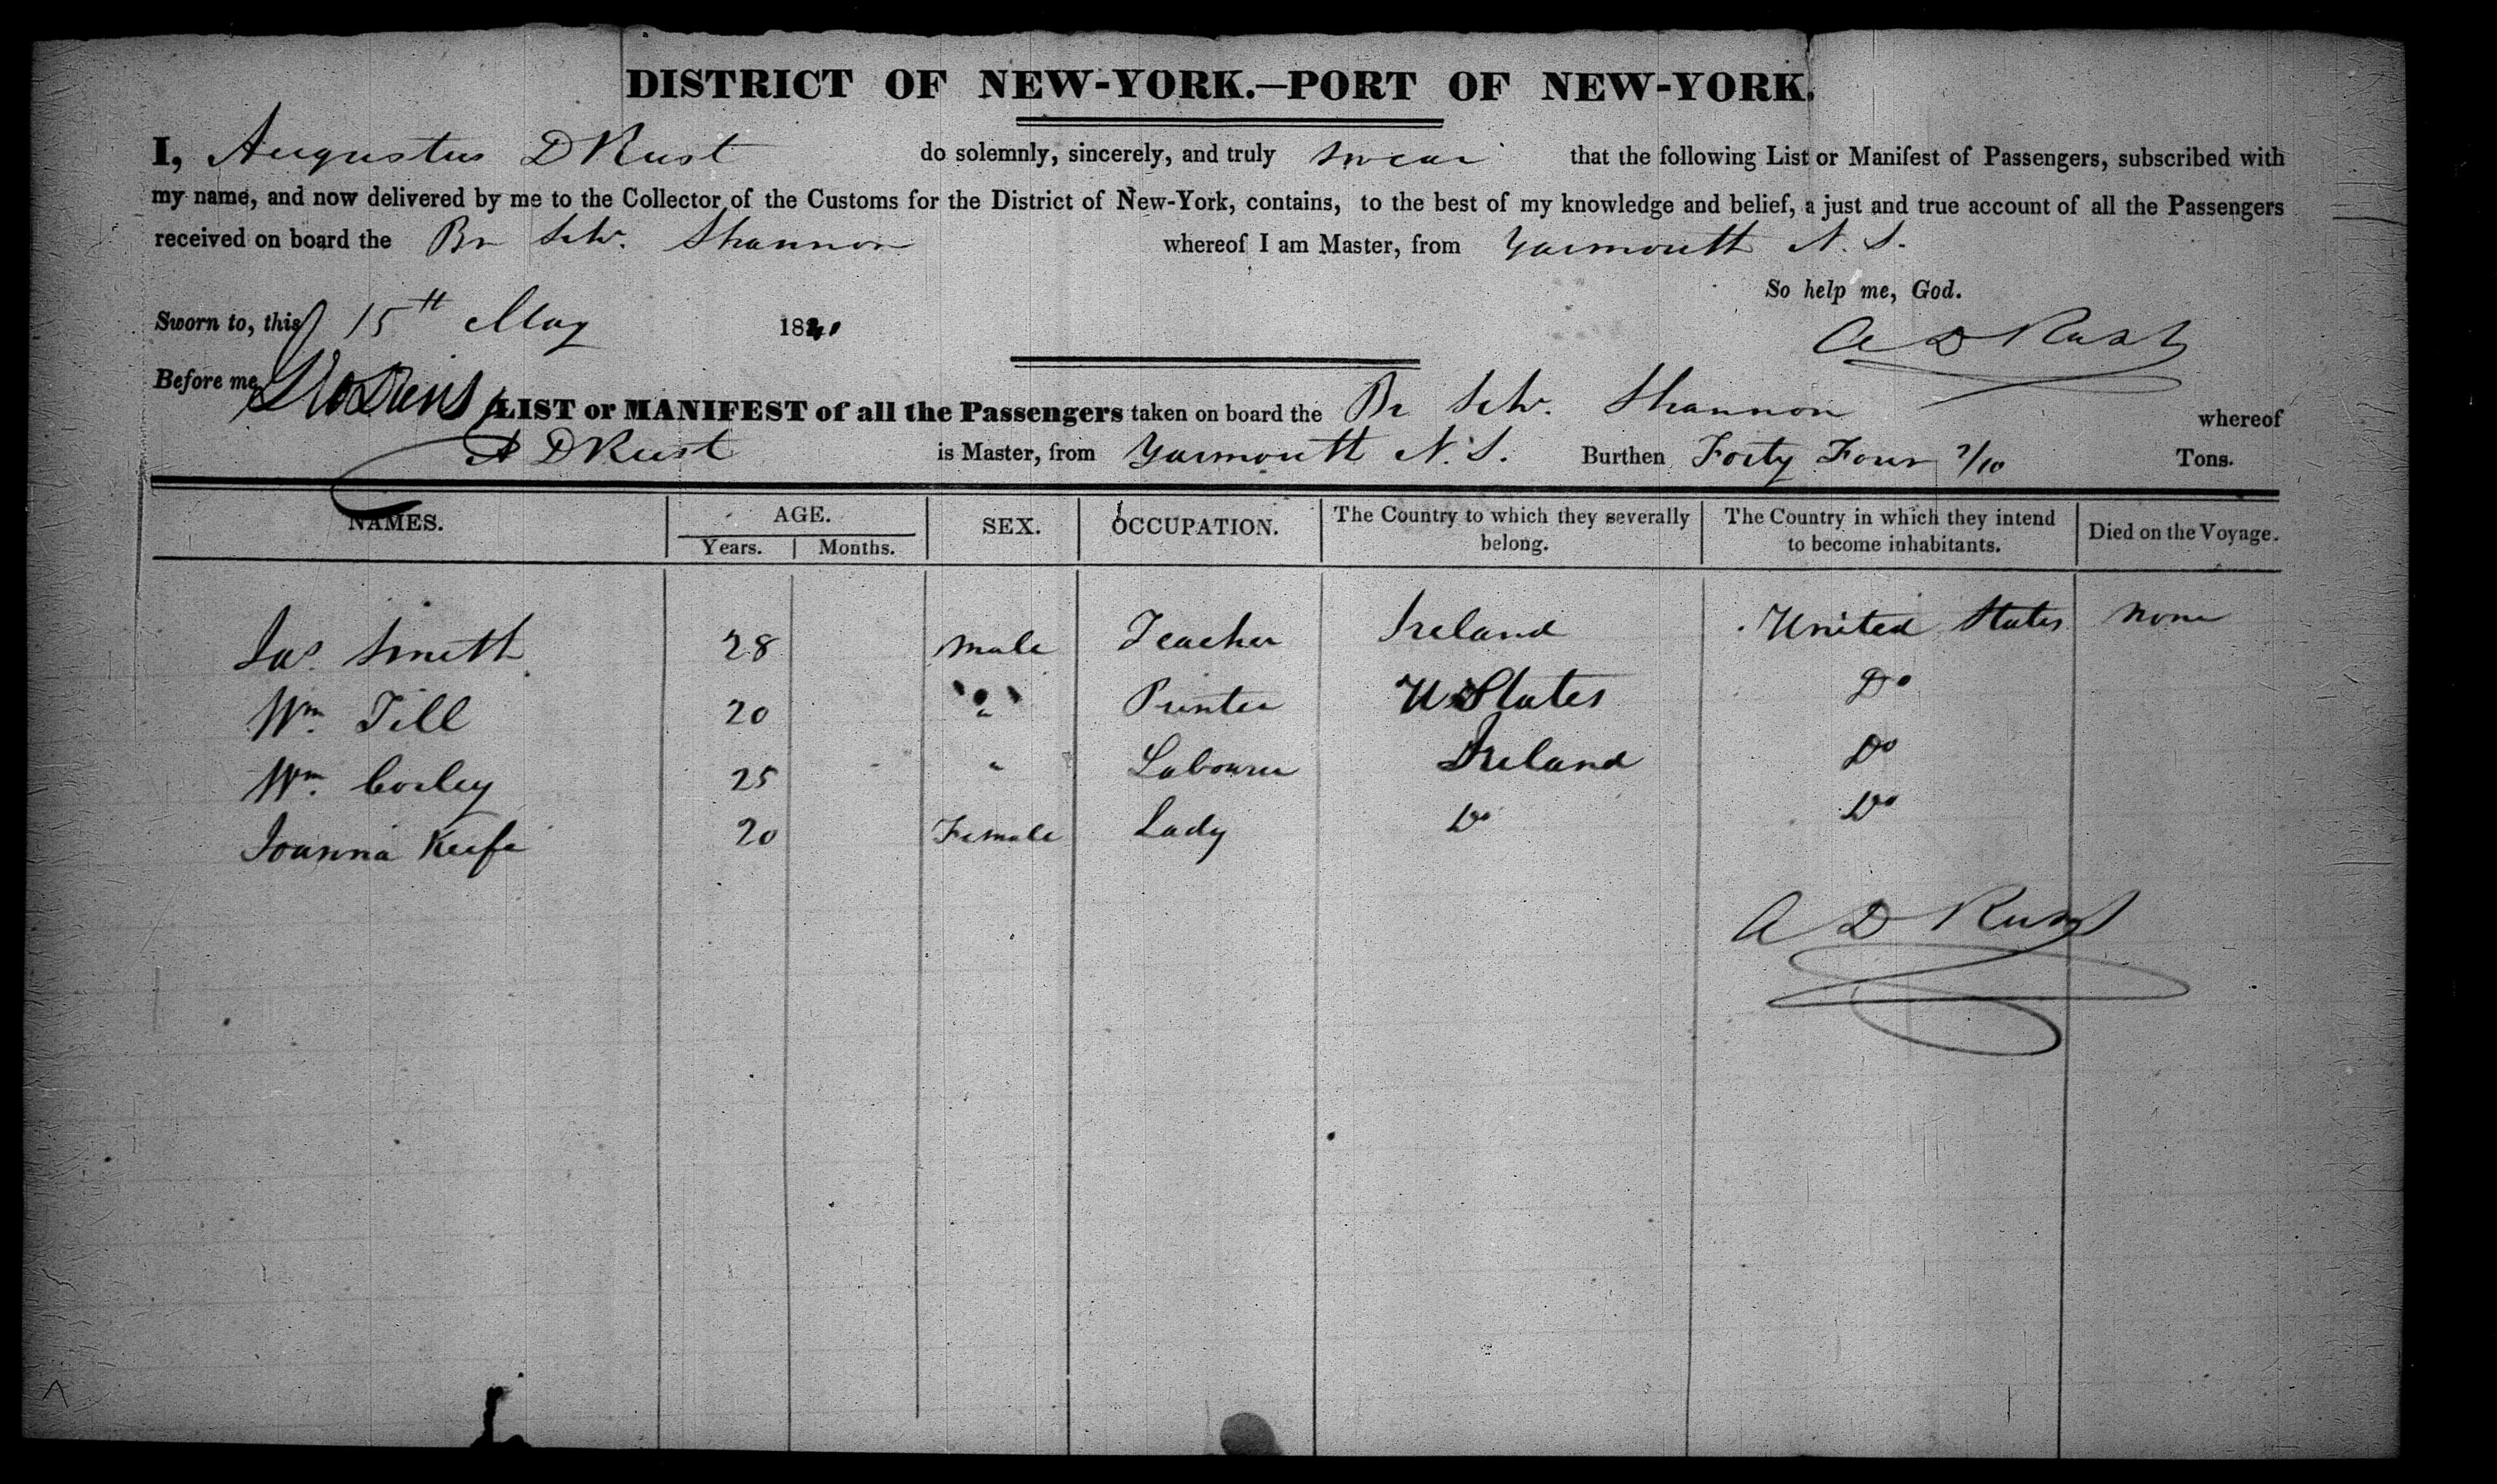 DISTRICT OF NEW-YORK.—PORT OF NEW-YORK.
I, Augustus D Rust do solemnly, sincerely, and truly swear that the following List or Manifest of Passengers, subscribed with
my name, and now delivered by me to the Collector of the Customs for the District of New-York, contains, to the best of my knowledge and belief, a just and true account of all the Passengers
received on board the Br Schr. Shannon whereof I am Master, from Yarmouth N. S.
So help me, God.
Sworn to, this 15th May 18
A D Rust
Before me,
LIST or MANIFEST of all the Passengers taken on board the Br Schr. Shannon whereof
A D Rust is Master, from Yarmouth N. S. Burthen Forty Four 7/10 Tons.
NAMES. AGE. Years. Months. SEX. OCCUPATION. The Country to which they severally belong. The Country in which they intend to become inhabitants. Died on the Voyage.
Jas. Smith 28 Male Teacher Ireland United States None
Wm. Till 20 " Printer U States Do
Wm. Corley 25 " Labourer Ireland Do
Joanna Keefe 20 Female Lady Do Do
A D Rust